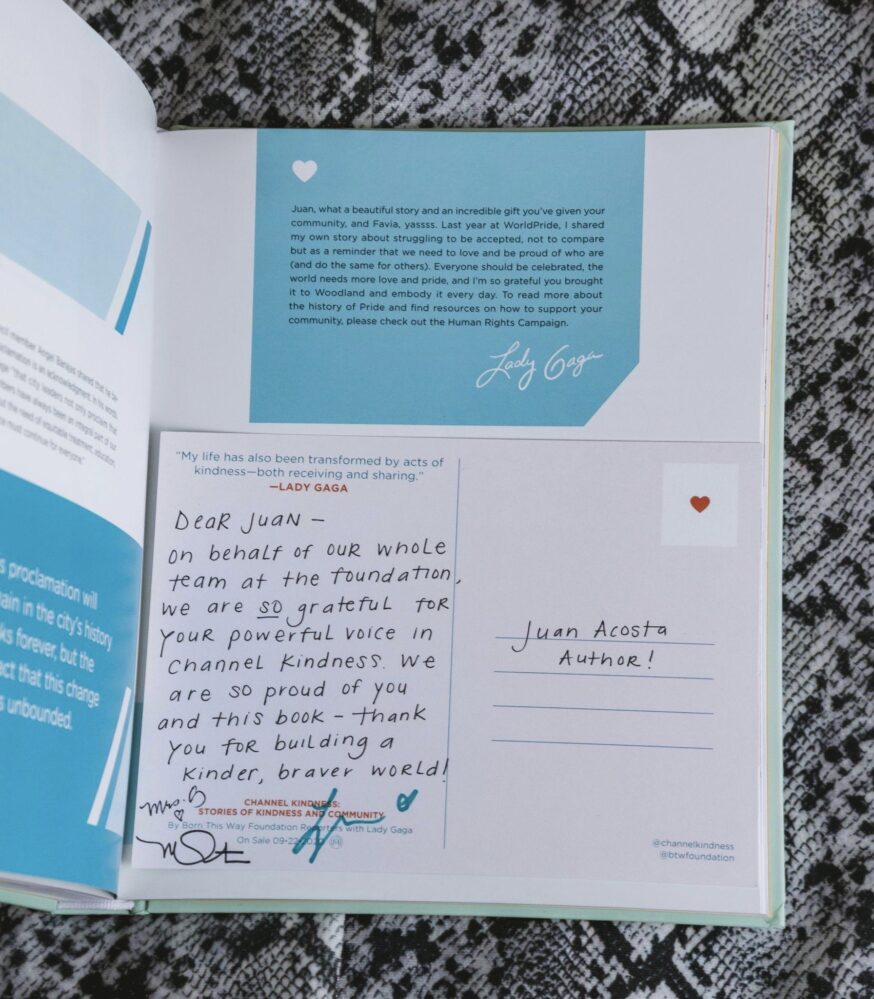 ncil member Angel Barajas shared that he be-
clamation is an acknowledgment, in his words,
ge "that city leaders not only proclaim that
bers have always been an integral part of our
ut the need of equitable treatment, education,
e must continue for everyone."
s proclamation will
ain in the city's history
ks forever, but the
act that this change
s unbounded.
Juan, what a beautiful story and an incredible gift you've given your
community, and Favia, yassss. Last year at WorldPride, I shared
my own story about struggling to be accepted, not to compare
but as a reminder that we need to love and be proud of who are
(and do the same for others). Everyone should be celebrated, the
world needs more love and pride, and I'm so grateful you brought
it to Woodland and embody it every day. To read more about
the history of Pride and find resources on how to support your
community, please check out the Human Rights Campaign.
Lady Gaga
"My life has also been transformed by acts of
kindness—both receiving and sharing."
—LADY GAGA
Dear Juan –
on behalf of our whole
team at the foundation,
we are so grateful for
your powerful voice in
channel kindness. We
are so proud of you
and this book – thank
you for building a
kinder, braver world!
Mrs. G
CHANNEL KINDNESS:
STORIES OF KINDNESS AND COMMUNITY
By Born This Way Foundation Reporters with Lady Gaga
On Sale 09-22-2020
Juan Acosta
Author!
@channelkindness
@btwfoundation